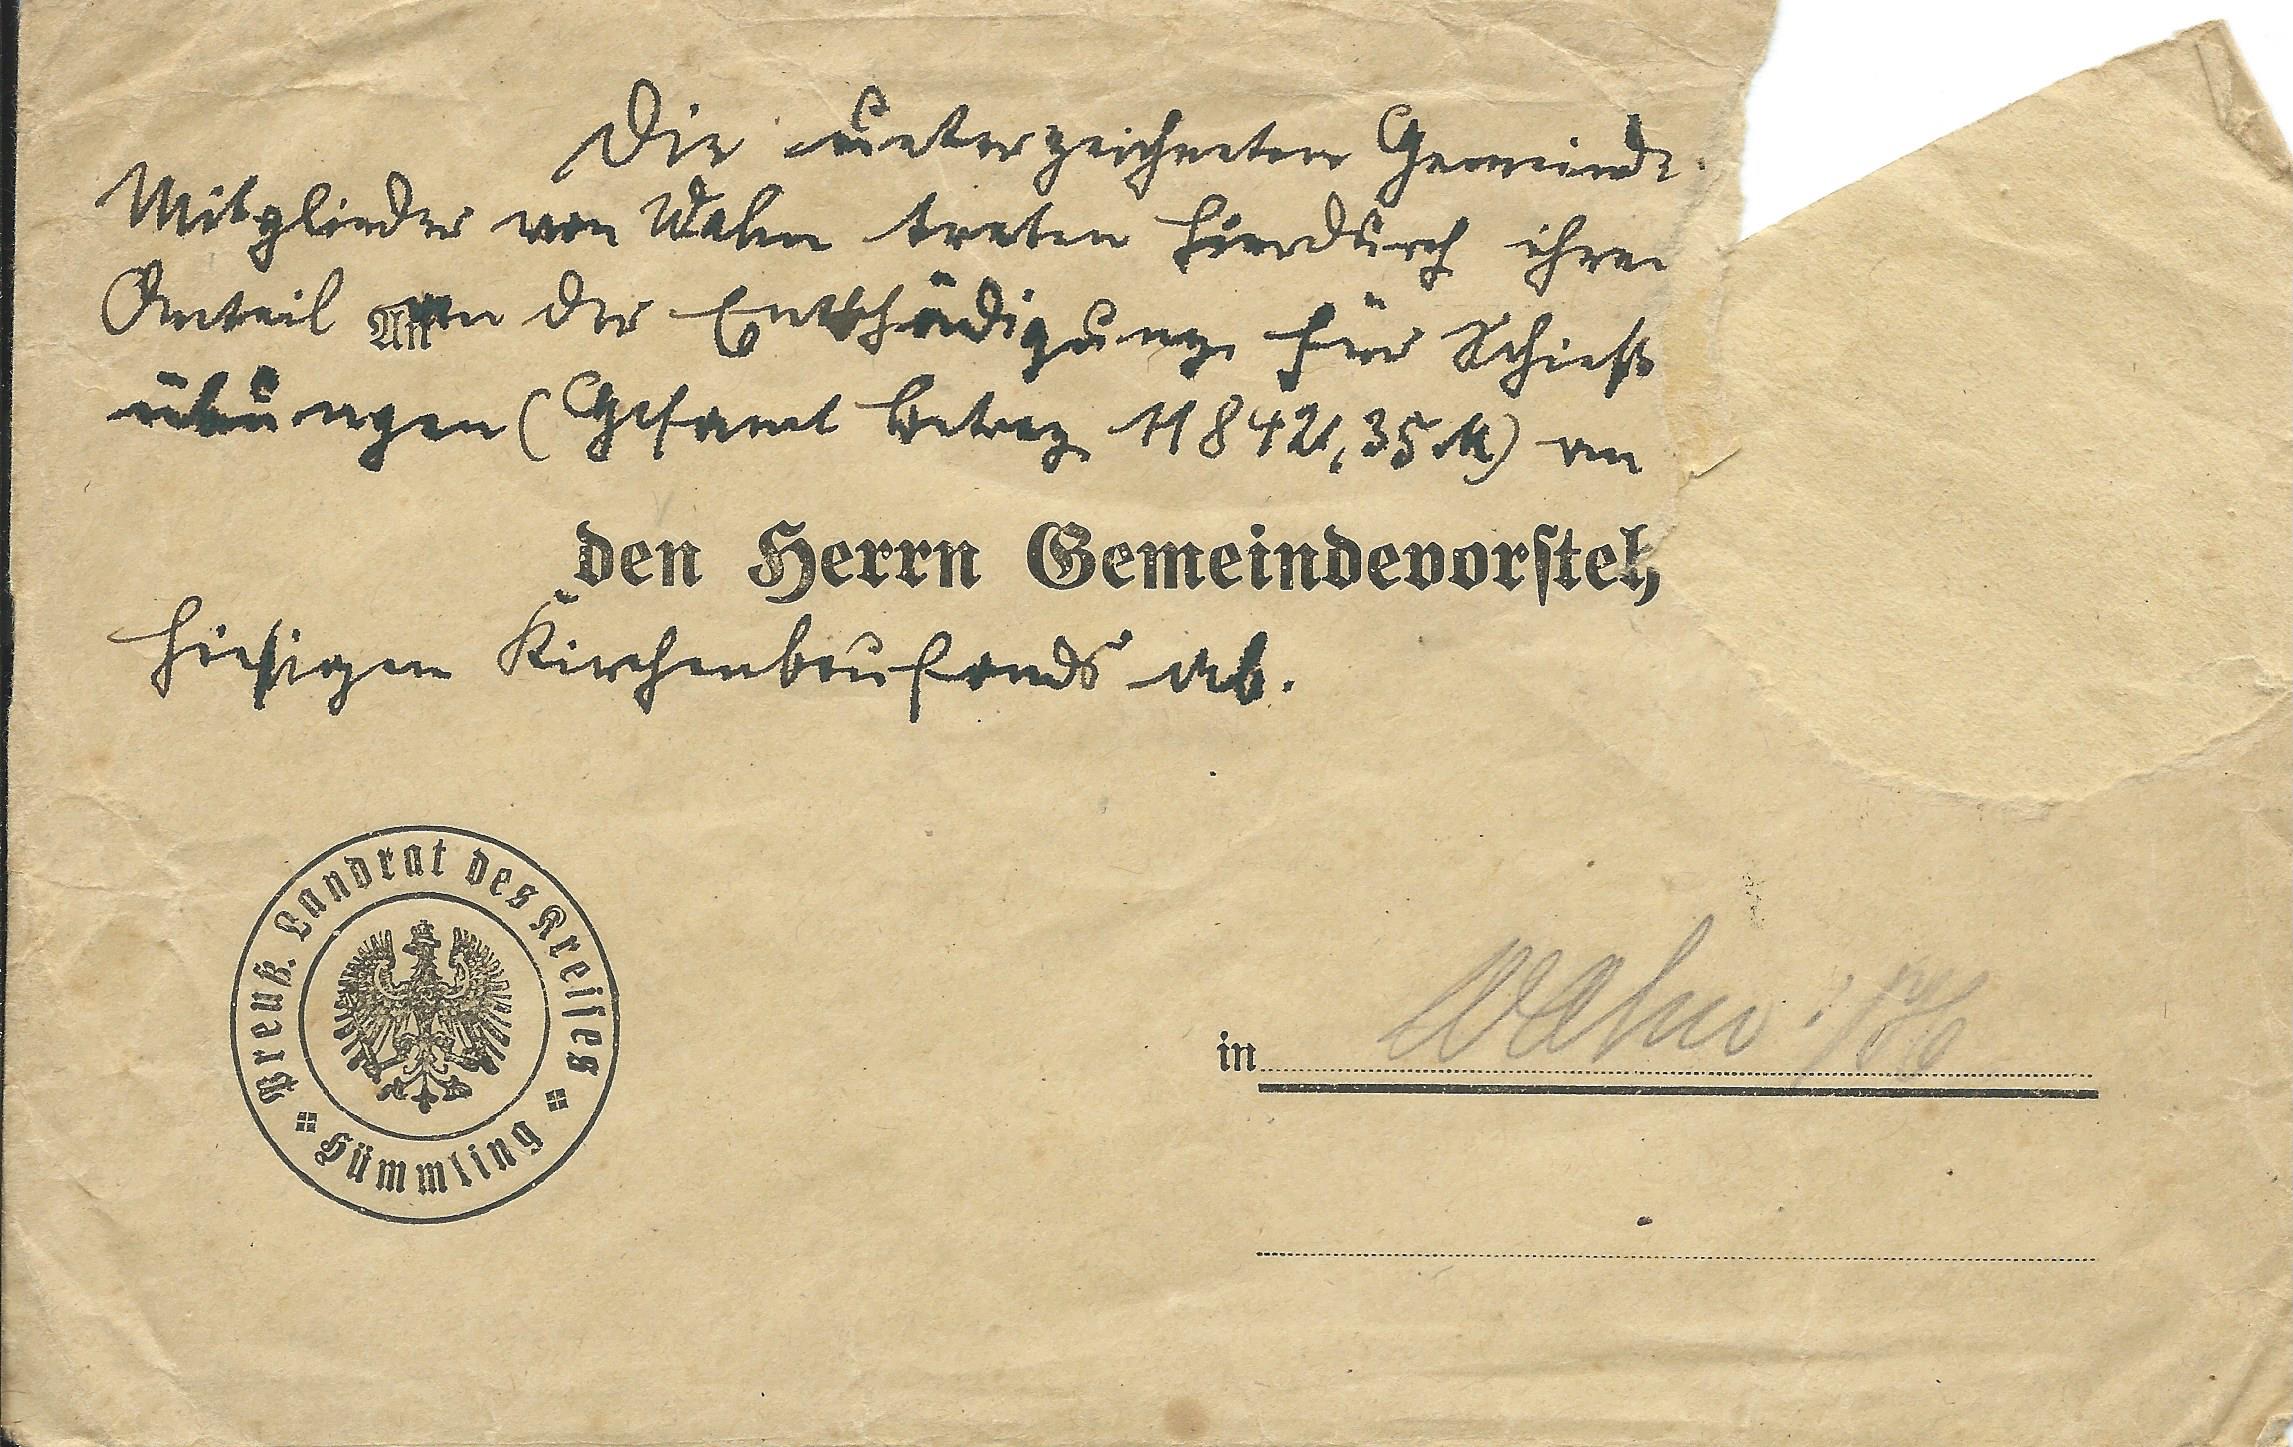 Die unterzeichneten Gemeinde-
Mitglieder von Wahn treten hierdurch ihren
Anteil An an der Entschädigung für Schieß
übungen (Gesamt betrag 11842,35 M) an
den Herrn Gemeindevorsteh
hiesigen Kirchenbaufonds ab.
Preuß. Landrat des Kreises
Hümmling
in Wahn